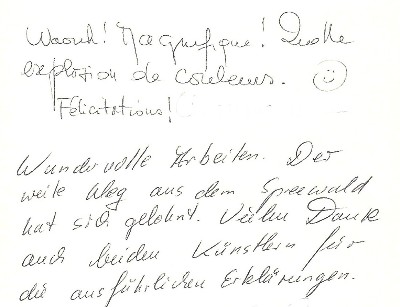 Waouh! Magnifique! Quelle
explosion de couleurs. ☺
Félicitations!
Wundervolle Arbeiten. Der
weite Weg aus dem Spreewald
hat sich gelohnt. Vielen Dank
auch beiden Künstlern für
die ausführlichen Erklärungen.